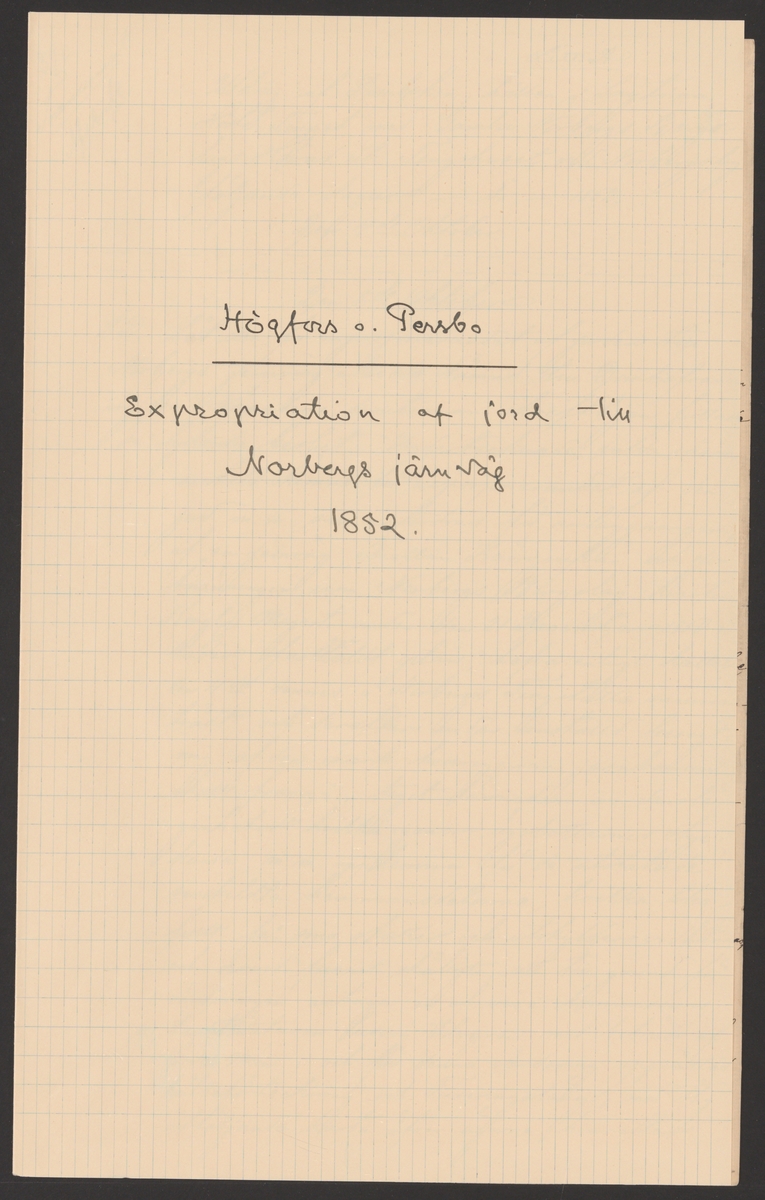 Högfors o. Persbo
Expropriation af jord till
Norbergs järnväg
1852.